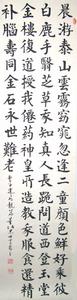 晨游泰山雲霧窈窕忽逢二童顏色鮮好乘彼
白鹿手翳芝草我知真人長跪問道西登玉堂
金樓復道授我仙藥神皇所造教我服食還精
補腦壽同金石永世難老